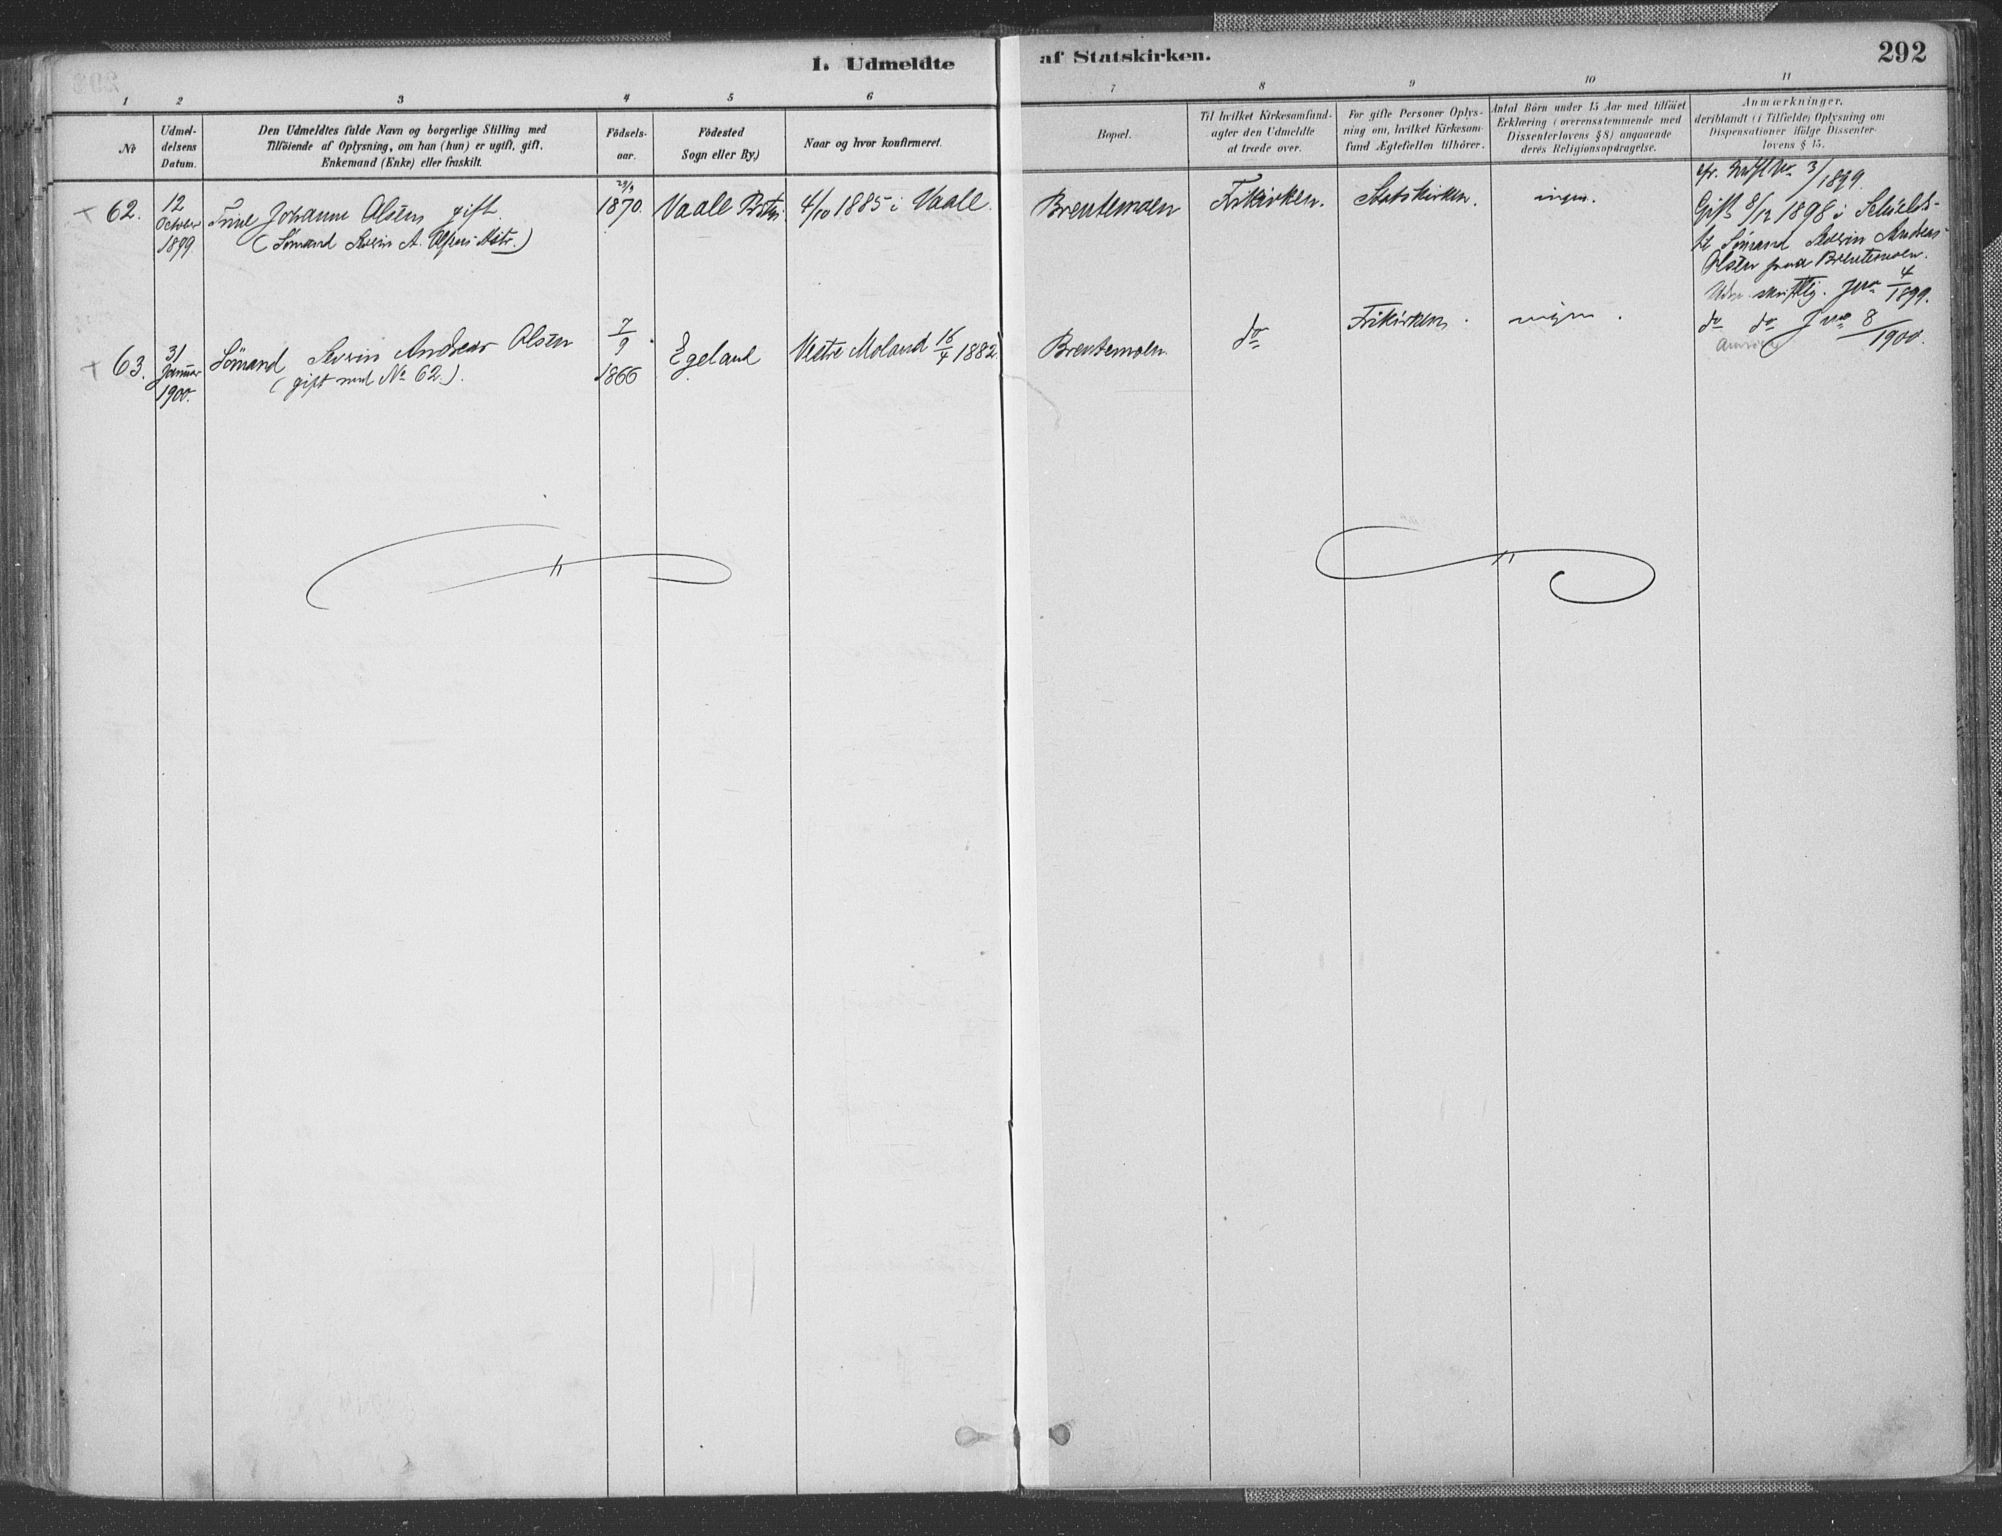 I. Udmeldte af Statskirken.
292
1 2 3 4 5 6 7 8 9 10 11
№
Udmel-
delsens
Datum.
Den Udmeldtes fulde Navn og borgerlige Stilling med
Tilföiende af Oplysning, om han (hun) er ugift, gift,
Enkemand (Enke) eller fraskilt.
Födsels-
aar.
Födested
Sogn eller By.)
Naar og hvor konfirmeret.
Bopæl.
Til hvilket Kirkesamfund-
agter den Udmeldte
at træde over.
For gifte Personer Oplys-
ning om, hvilket Kirkesam-
fund Ægtefællen tilhörer.
Antal Börn under 15 Aar med tilföiet
Erklæring (overensstemmende med
Dissenterlovens § 8) angaaende
deres Religionsopdragelse.
Anmærkninger,
deriblandt (i Tilfælde) Oplysning om
Dispensationer ifölge Dissenter-
lovens § 15.
+ 62.
12
October
1899.
Johanne Olsen gift.
(Sömand Severin A. Olsens Hstr.)
29/9
1870.
Vaale
4/10 1885 i Vaale.
Brentemoen
Frikirken.
Statskirken.
ingen.
cfr. 3/1899.
Gift 8/12 1898 i
Sömand Severin Andreas
Olsen fraa Brentemoen.
Udm. skriftlig. Jno 4/1899.
+ 63.
31
Januar
1900.
Sömand Severin Andreas Olsen
(gift med No 62.).
7/9
1866
Egeland
Vestre Moland 16/4 1882
Brentemoen.
do
Frikirken.
ingen.
do do Jno 8/1900.